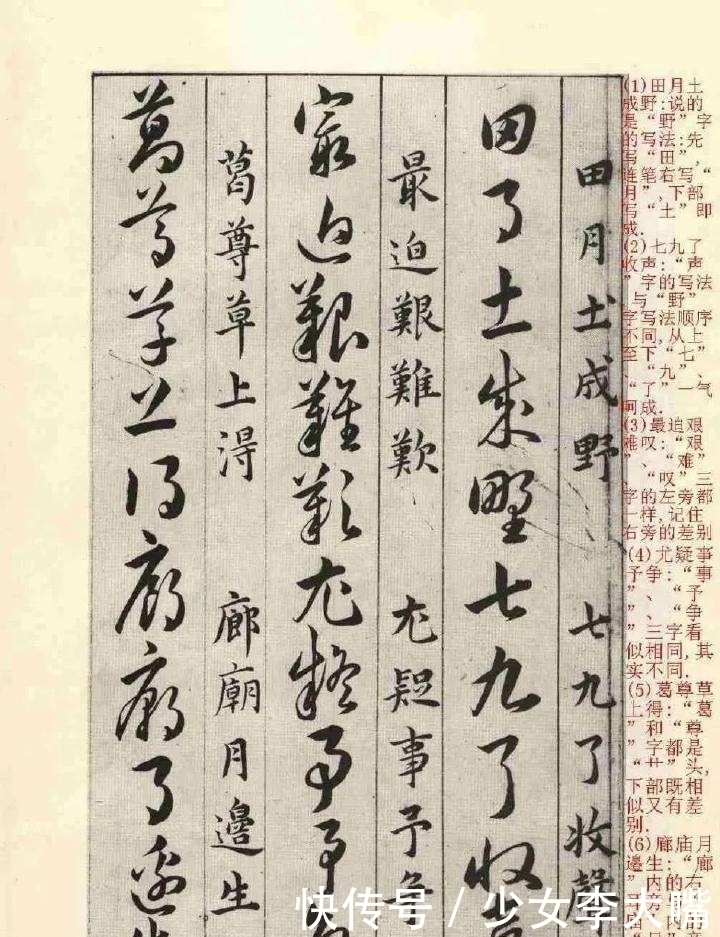 田月土成野 七九了收聲
田月土成野七九了收
最迫艱難歎 尤疑事予爭
最迫艱難歎尤疑事予
葛尊草上得 廊廟月邊生
葛尊草上得廊廟月邊生
(1)田月土
成野:说的
是“野”字
的写法:先
写“田”,
连笔右写“
月”,下部
写“土”即
成.
(2)七九了
收声:“声
”字的写法
,与“野”
字写法顺序
不同,从上
至下“七”
、“九”、
“了”一气
呵成.
(3)最迫艰
难叹:“艰
”、“难”
、“叹”三
字的左旁都
一样,记住
右旁的差别
(4)尤疑事
予争:“事
”、“予
”、“争
”三字看
似相同,其
实不同.
(5)葛尊草
上得:“葛
”和“尊
”字都是
“艹”头,
下部既相
似又有差
别.
(6)廊庙月
邊生:“廊
”内的右
快传号 / 少女李大嘴